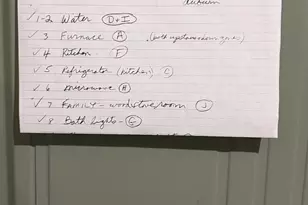 auburn
✓ 1-2 Water (D+I)
✓ 3 Furnace (A) (both upstairs
✓ 4 Kitchen (F)
✓ 5 Refrigerator (kitchen) (C)
✓ 6 microwave (B)
✓ 7 Family - woodstove room (J)
✓ 8 Bath lights - (G)